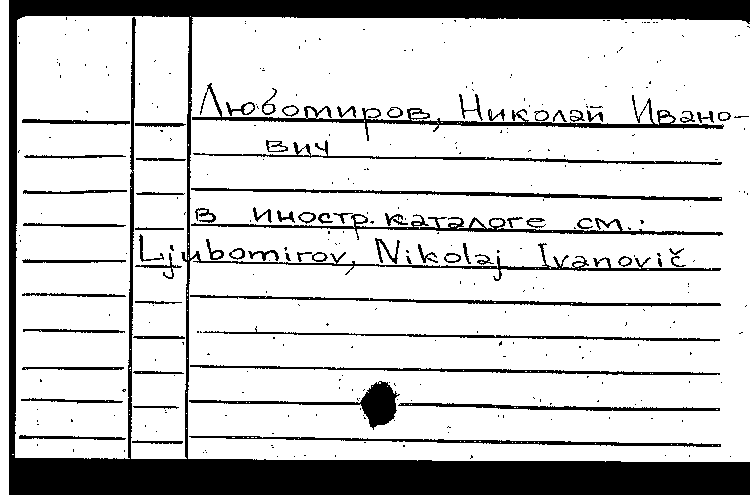 Любомиров, Николай Ивано-
вич
в иностр. каталоге см.:
Ljubomirov, Nikolaj Ivanovič